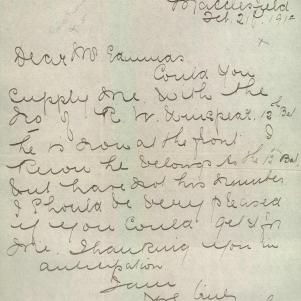 Macclesfield
Feb. 21st 191
Dear Mr
Could You
supply Me. With the
No of R. W. 12th Bat
he is now at the front I
Know he belongs to the 12th Bat
but have not his number
I should be very pleased
if you could get it for
Me. Thanking you in
anticipation
I am